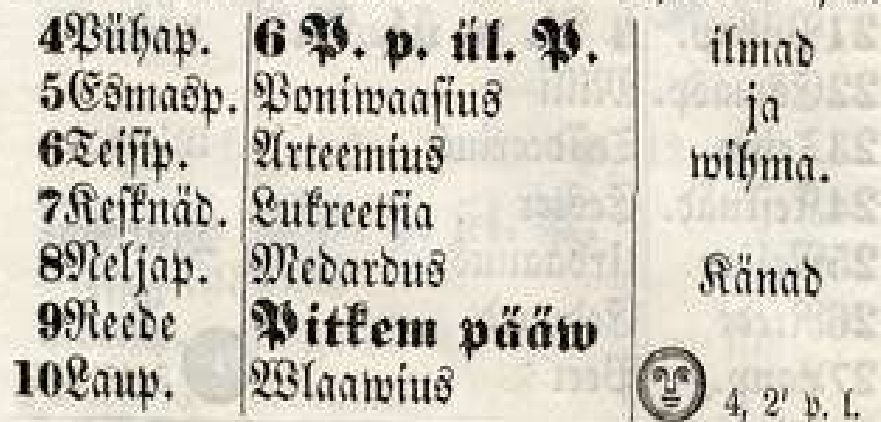 4 Pühap. 6 P. p. ül. P. ilmad
5 Esmasp. Poniwaasius ja
6 Teisip. Arteemius wihma.
7 Kesknäd. Lukreetsia
8 Neljap. Medardus Känad
9 Reede Pitkem pääw
10 Laup. Wlaawius 4, 2' p. l.